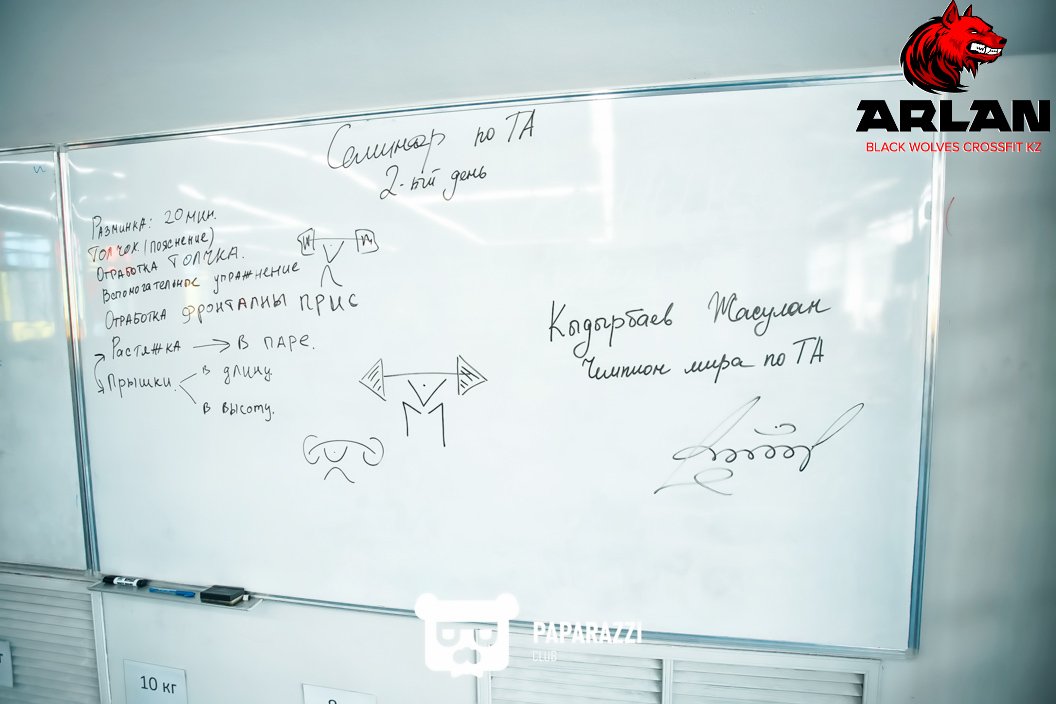 ARLAN
BLACK WOLVES CROSSFIT KZ
Семинар по ТА
2-ый день
Разминка: 20 мин.
Толчок (пояснение)
Отработка толчка.
Вспомогательное упражнение
Отработка фронталны прис
Растяжка → в паре.
Прышки
в длину
в высоту.
Кыдырбаев Жасулан
Чемпион мира по ТА
PAPARAZZI
CLUB
10 кг